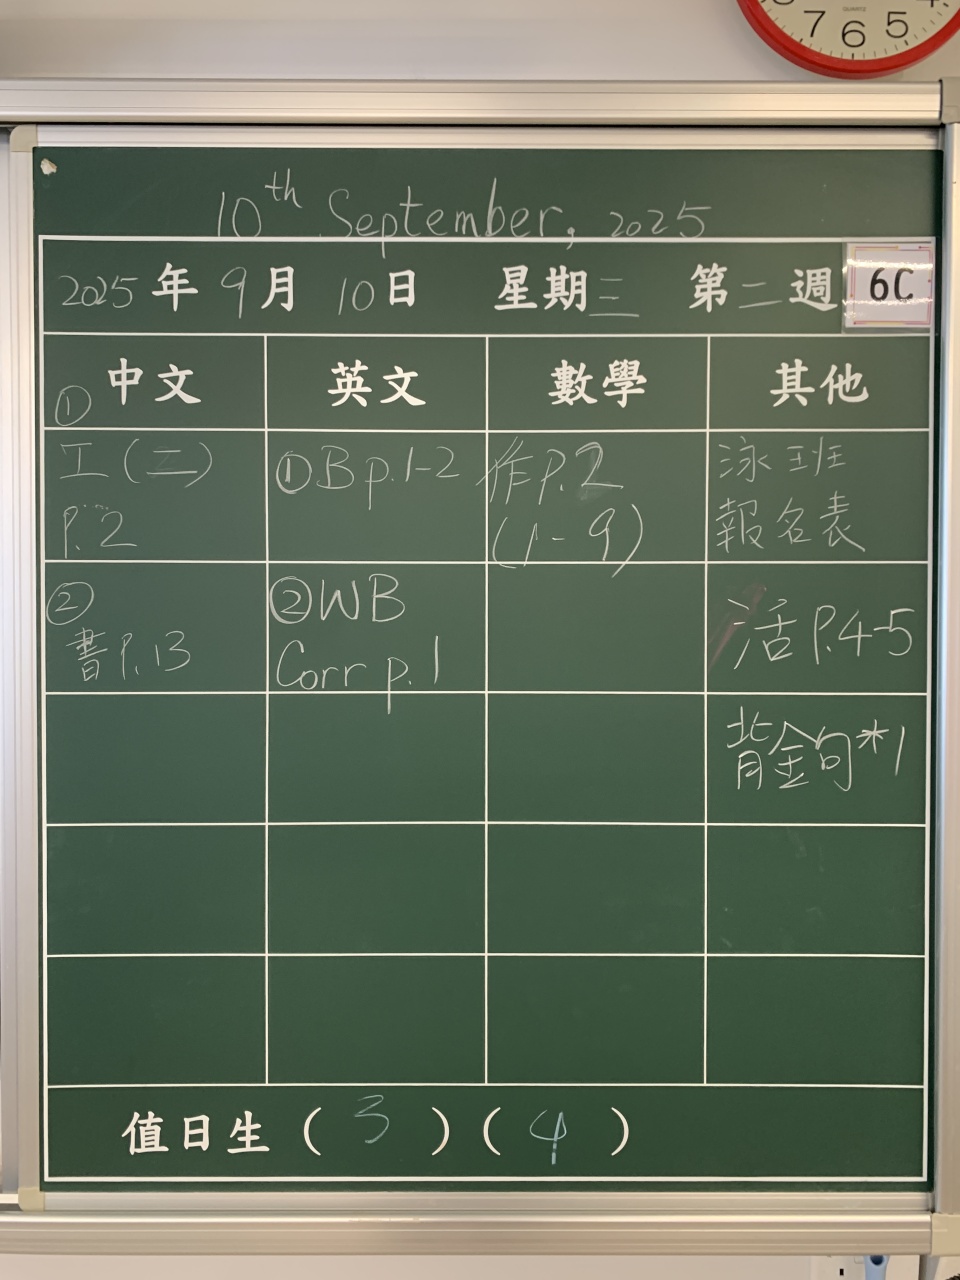 7 6 5
QUARTZ
10th September, 2025
2025 年 9 月 10 日 星期三 第二週 6C
中文 英文 數學 其他
① 工(二) P.2
①B p.1-2
作P.2 (1-9)
泳班 報名表
② 書P.13
②WB Corr p.1
活P.4-5
背金句*1
值日生 ( 3 ) ( 4 )